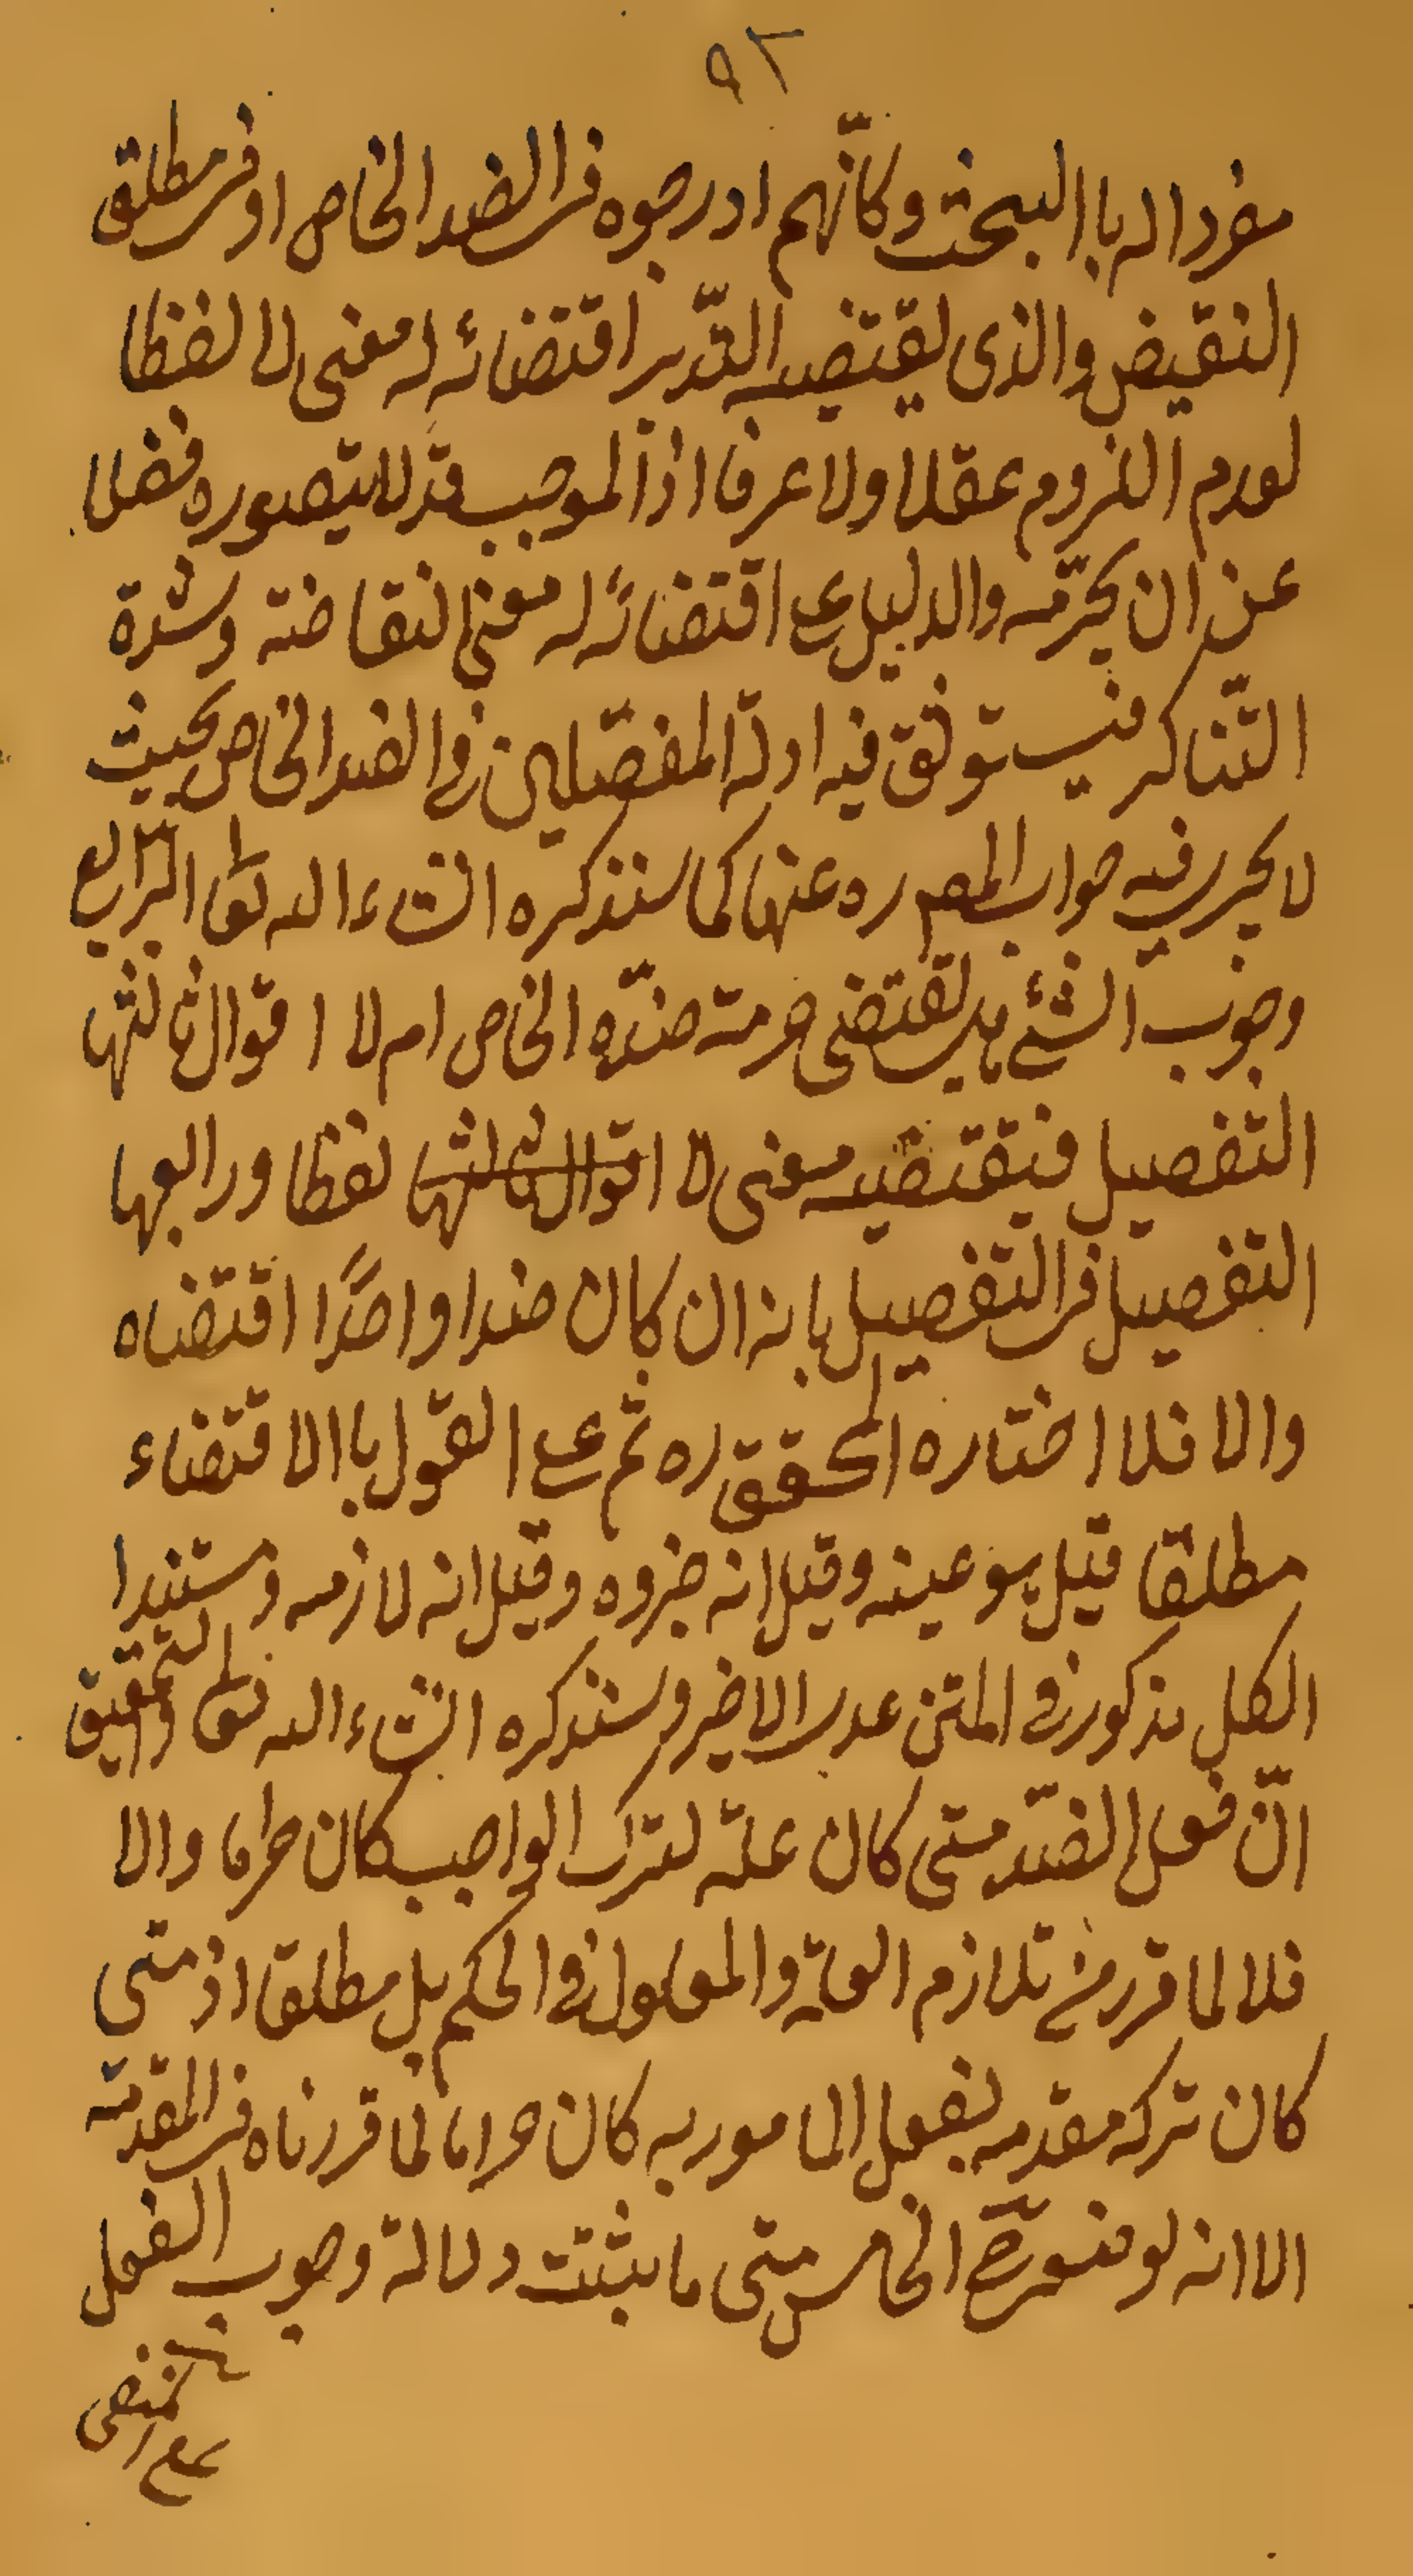 ٩٢
مفردا له باالبحث وكانّهم ادرجوه فى الضد الخاص او فى مطلق
النقيض والذى يقتضيه التدبر اقتضائه له معنى لا لفظا
لعدم اللزوم عقلا ولا عرفا اذ الموجب قد لا يتصوره فضلا
عن ان يحرّمه والدليل على اقتضائه له معنى لنقاضته وشدة
التناكر فيستوثق فيه ادلة المفصّلين فى الضد الخاص بحيث
لا يجرى فيه جواب المصر ره عنها كما سنذكره انشاء الله تعالى الرّابع
وجوب الشئ هل يقتضى حرمة ضدّه الخاص ام لا اقوال ثالثها
التفصيل فيقتضيه معنى لا اقوال ثالثها لفظا ورابعها
التفصيل فى التفصيل بانه ان كان ضدا واحدًا اقتضاه
والا فلا اختاره المحقق ره ثم على القول باالاقتضاء
مطلقا قيل هو عينه وقيل انه جزوه وقيل انه لازمه ومستند
الكل مذكور فى المتن عدى الاخير وسنذكره انشاء الله تعالى والتحقيق
انّ فعل الضّد متى كان علّة لترك الواجب كان حراما والا
فلا لما قرر من تلازم العلّة والمعلول فى الحكم بل مطلقا اذ متى
كان تركه مقدمه لفعل المامور به كان حراما لما قررناه فى المقدمة
الا انه لو منع صحّ الخامس متى ما يثبت دلالة وجوب الفعل